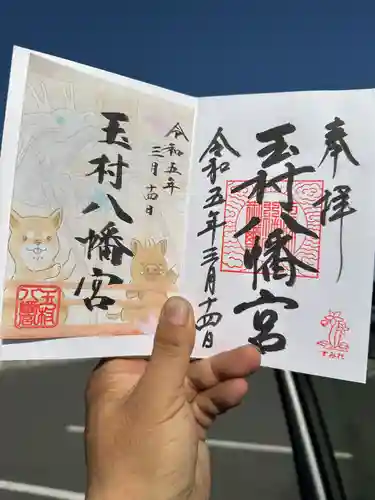 奉拝
玉村八幡宮
令和五年三月十四日
令和五年
三月十四日
玉村八幡宮
玉村
八幡宮